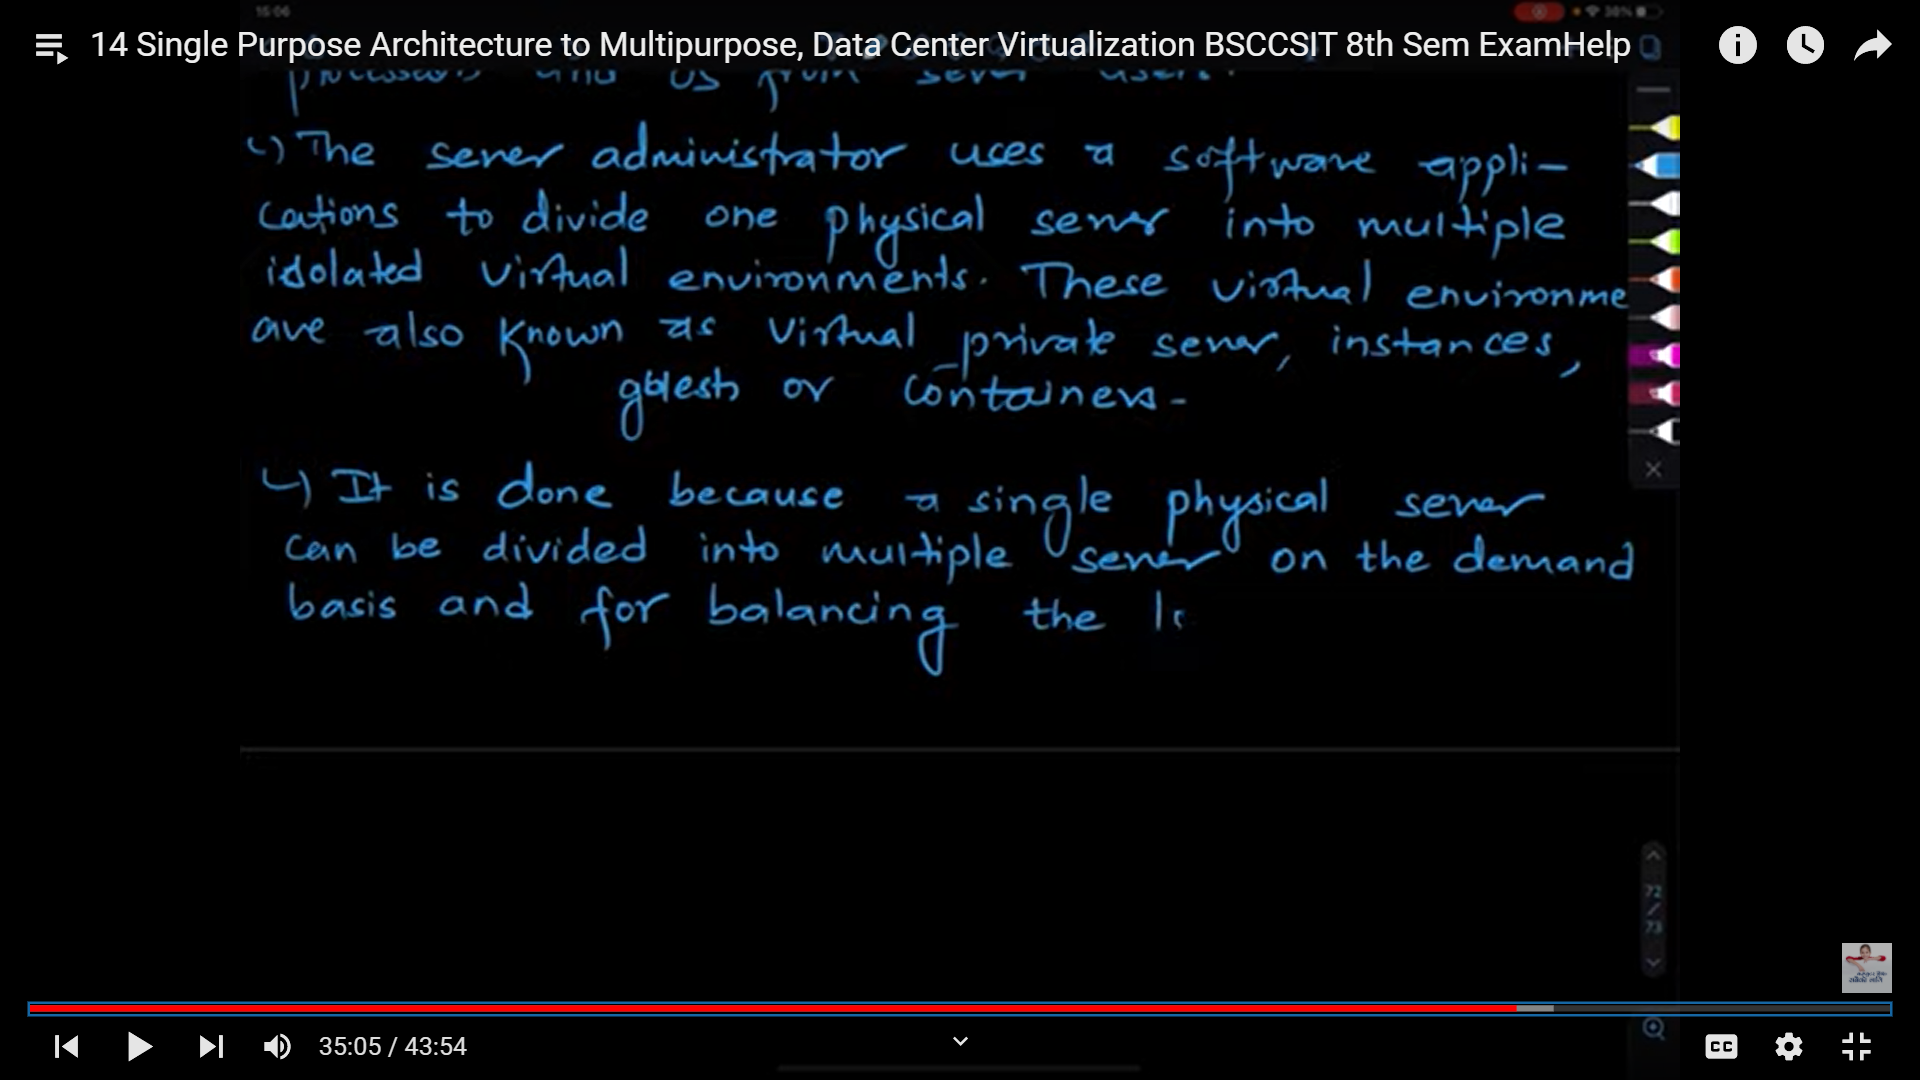 15:06
38%
14 Single Purpose Architecture to Multipurpose, Data Center Virtualization BSCCSIT 8th Sem ExamHelp
processors and OS from server users.
↳ The server administrator uses a software appli-
cations to divide one physical server into multiple
isolated virtual environments. These virtual environme
are also known as virtual private server, instances,
guests or containers.
↳ It is done because a single physical server
can be divided into multiple server on the demand
basis and for balancing the lo
72
/
73
35:05 / 43:54
CC